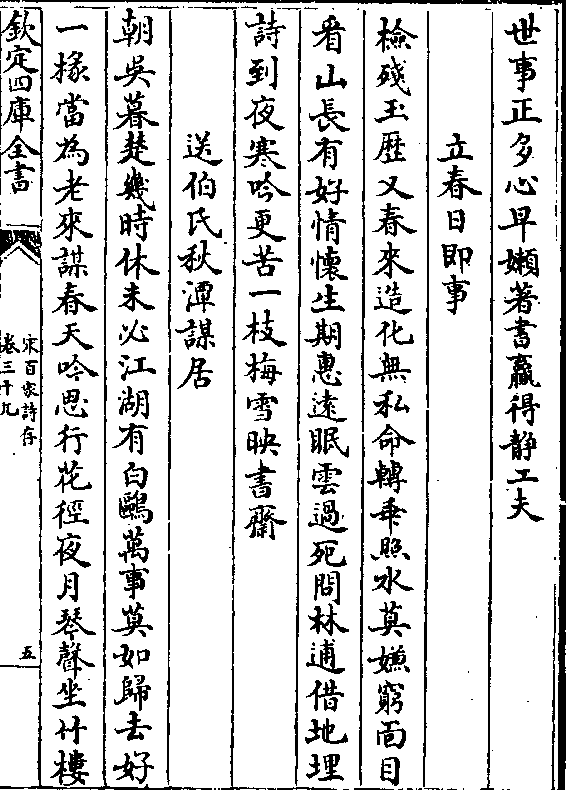 世事正多心早嬾著書贏得静工夫
立春日即事
檢殘玉歴又春來造化無私命轉乖照水莫嫌窮面目
看山長有好情懷生期惠遠眠雲過死問林逋借地埋
詩到夜寒吟更苦一枝梅雪映書齋
送伯氏秋潭謀居
朝吳暮楚幾時休未必江湖有白鷗萬事莫如歸去好
一椽當為老來謀春天吟思行花徑夜月琴聲坐竹樓
欽定四庫全書
宋百家詩存
卷三十九
五